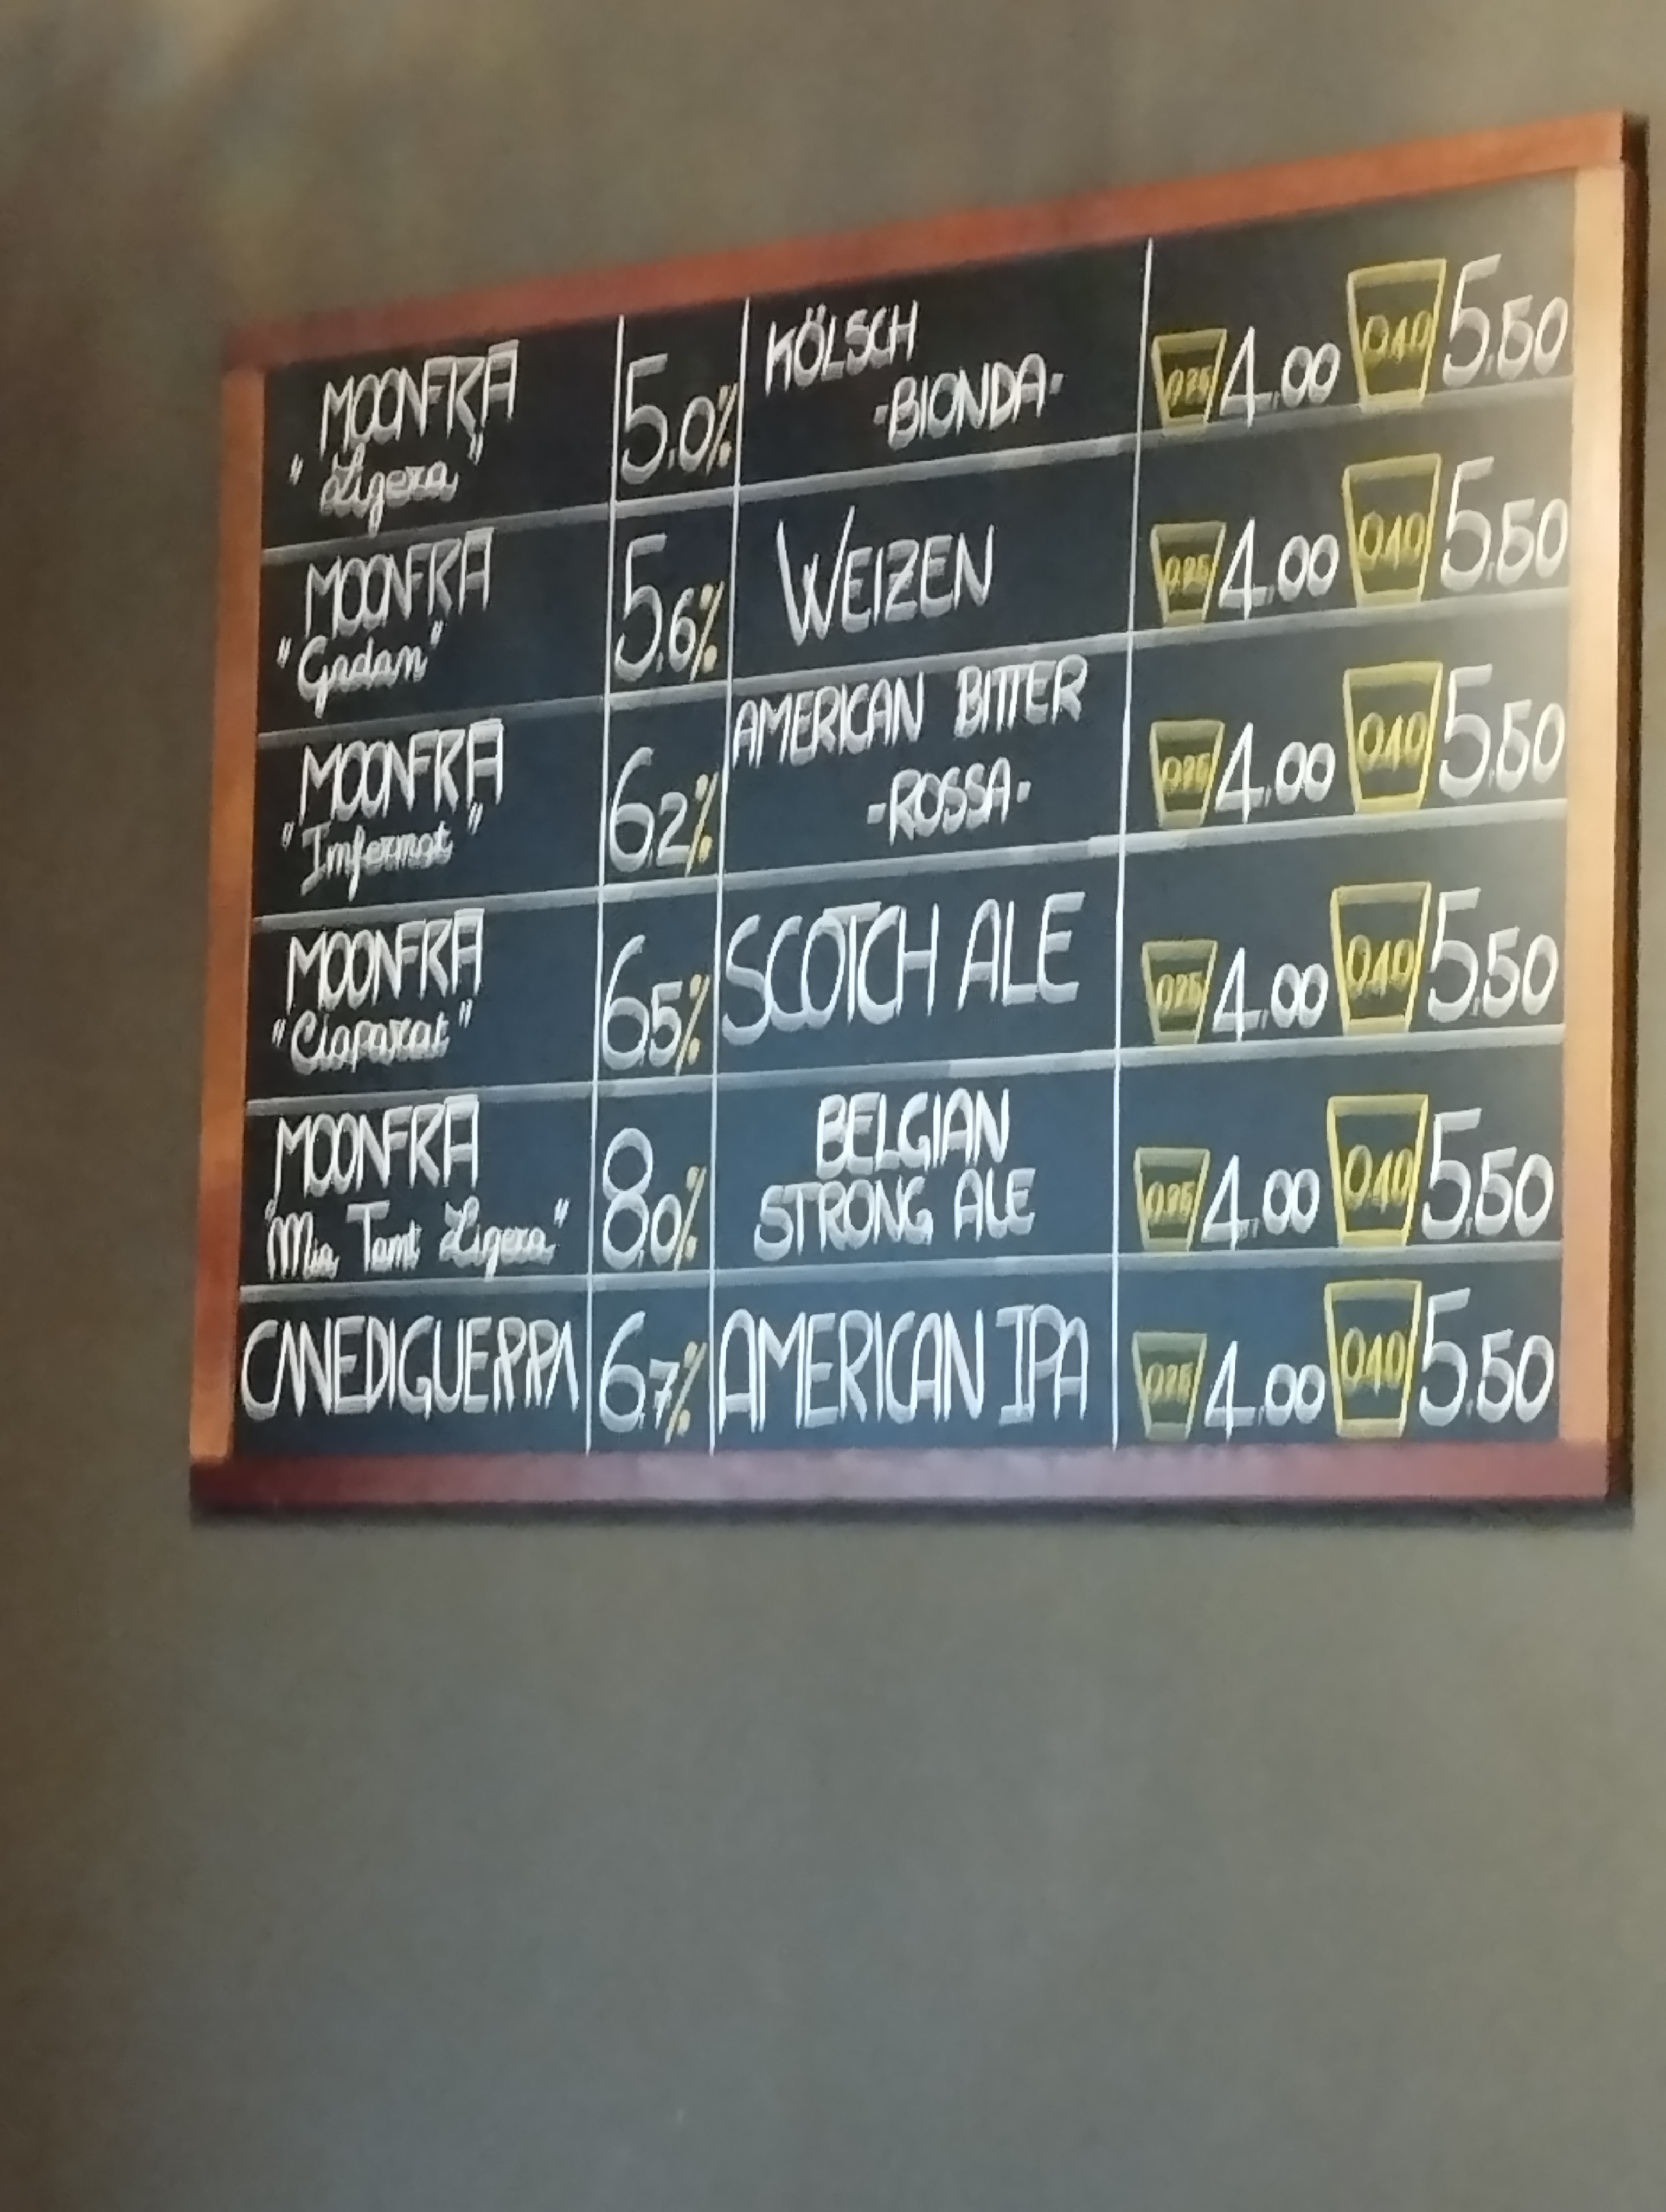 MOONFRA
"Ligera"
5.0%
KÖLSCH
-BIONDA-
0.25 4.00 0.40 5.50
MOONFRA
"Gadan"
5.6%
WEIZEN
0.25 4.00 0.40 5.50
MOONFRA
"Infernot"
6.2%
AMERICAN BITTER
-ROSSA-
0.25 4.00 0.40 5.50
MOONFRA
"Ciaparat"
6.5%
SCOTCH ALE
0.25 4.00 0.40 5.50
MOONFRA
"Mia Tant Ligera"
8.0%
BELGIAN
STRONG ALE
0.25 4.00 0.40 5.50
CANEDIGUERRA
6.7%
AMERICAN IPA
0.25 4.00 0.40 5.50